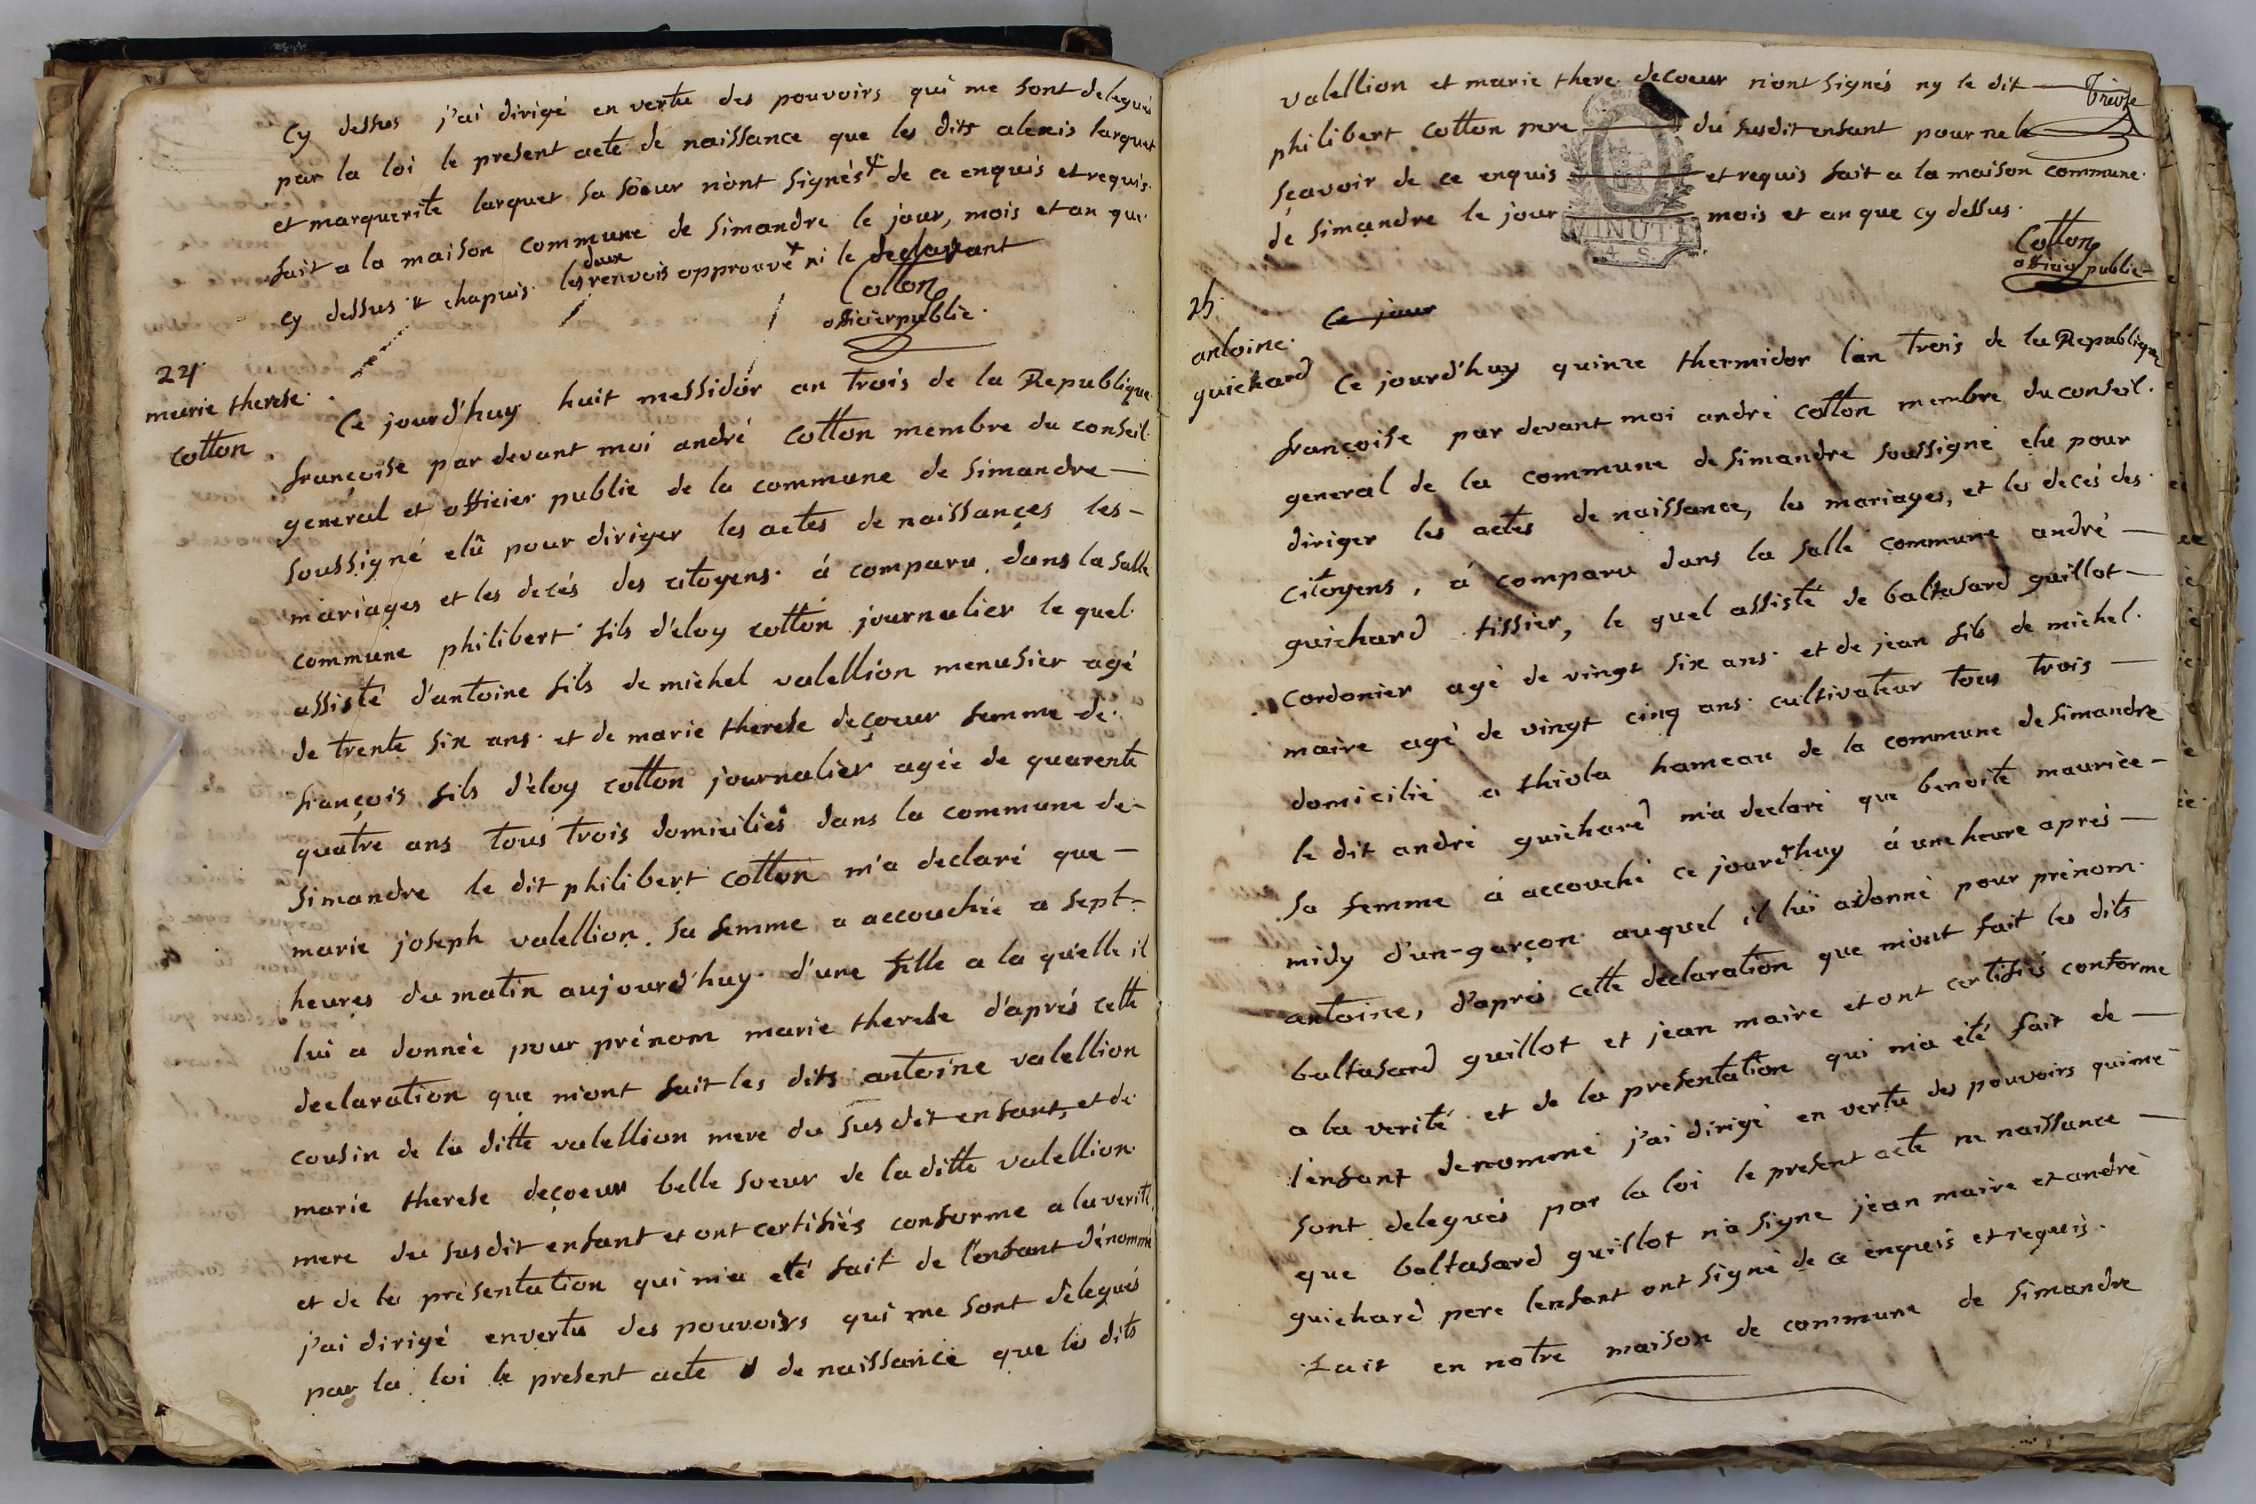 cy dessus j'ai dirigé en vertu des pouvoirs qui me sont delegués
par la loi le present acte de naissance que les dits alexis larguet
et marguerite larguet sa soeur n'ont signés + de ce enquis et requis.
fait a la maison commune de simandre le jour, mois et an que
cy dessus + chapuis les deux renvois approuvé + ni le declarant
Cotton
officier public.
24.
marie therese.
cotton.
Ce jourd'huy huit messidor an trois de la Republique
françoise par devant moi andré cotton membre du conseil.
general et officier public de la commune de simandre —
soussigné elû pour diriger les actes de naissançes les —
mariages et les decés des citoyens. á comparu dans la salle
commune philibert fils d'eloy cotton journalier le quel
assisté d'antoine fils de michel valellion menusier agé
de trente six ans. et de marie therese deçoeur femme de.
françois fils d'eloy cotton journalier agée de quarente
quatre ans tous trois domiciliés dans la commune de —
simandre le dit philibert cotton m'a declaré que —
marie joseph valellion sa femme a accouchée a sept —
heures du matin aujourd'huy. d'une fille a la qu'elle il
lui a donnée pour prénom marie therese d'aprés cette
declaration que m'ont fait les dits antoine valellion
cousin de la ditte valellion mere du susdit enfant, et de
marie therese deçoeur belle soeur de la ditte valellion
mere du susdit enfant et ont certifiés conforme a la verité,
et de la présentation qui m'a eté fait de l'enfant dénommé
j'ai dirigé en vertu des pouvoirs qui me sont délegués
par la loi le present acte de naissance que les dits
valellion et marie there. decoeur n'ont signés ny le dit —
philibert cotton pere — du susdit enfant pour ne le
sçavoir de ce enquis — et requis fait a la maison commune.
de simandre le jour — mois et an que cy dessus.
MINUTE
Cotton
officier public
25.
antoine.
guichard
Ce jour
Ce jourd'huy quinze thermidor l'an trois de la Republique
françoise par devant moi andré cotton membre du conseil.
general de la commune de simandre soussigné elu pour
diriger les actes de naissance, les mariages, et les decés des
citoyens, á comparu dans la salle commune andré —
guichard tissier, le quel assisté de baltasard guillot —
cordonier agé de vingt six ans. et de jean fils de michel.
maire agé de vingt cinq ans. cultivateur tous trois —
domicilié a thiola hameau de la commune de simandre
le dit andré guichard m'a declaré que benoite maurice —
sa femme á accouché ce jourd'huy á une heure aprés —
midy d'un-garçon auquel il lui a donné pour prénom.
antoine, d'aprés cette declaration que m'ont fait les dits
baltasard guillot et jean maire et ont certifiés conforme
a la verité et de la presentation qui m'a été fait de —
l'enfant denommé j'ai dirigé en vertu des pouvoirs qui me
sont delegués par la loi le present acte ne naissance —
que baltasard guillot n'a signe jean maire et andré
guichard pere lenfant ont signé de ce enquis et requis.
fait en notre maison de commune de simandre